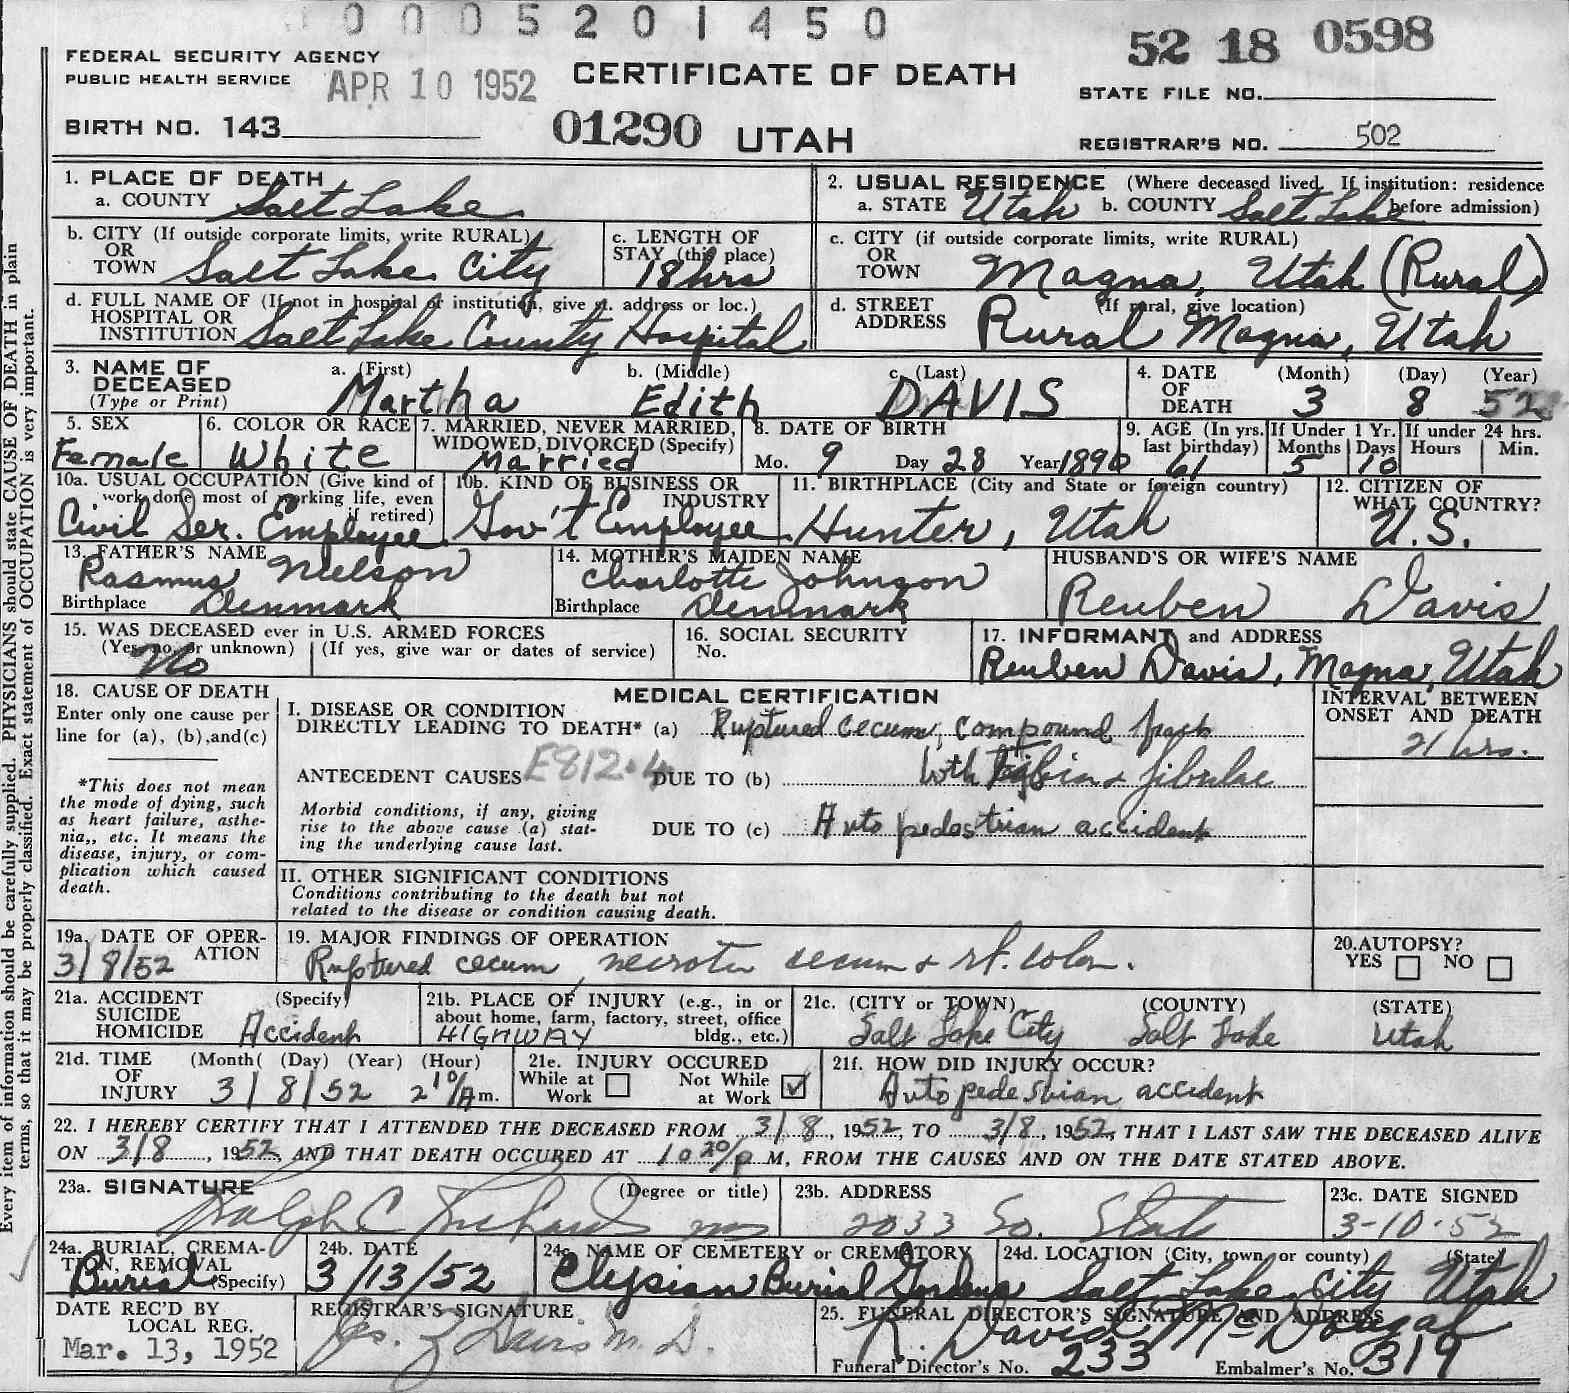 0 0 0 5 2 0 1 4 5 0
52 18 0598
FEDERAL SECURITY AGENCY
PUBLIC HEALTH SERVICE
APR 10 1952
CERTIFICATE OF DEATH
STATE FILE NO.
BIRTH NO. 143
01290 UTAH
REGISTRAR'S NO. 502
1. PLACE OF DEATH
a. COUNTY Salt Lake
2. USUAL RESIDENCE (Where deceased lived. If institution: residence before admission)
a. STATE Utah b. COUNTY Salt Lake
b. CITY (If outside corporate limits, write RURAL)
OR
TOWN Salt Lake City
c. LENGTH OF
STAY (this place)
18 hrs
c. CITY (if outside corporate limits, write RURAL)
OR
TOWN Magna, Utah (Rural)
d. FULL NAME OF (If not in hospital or institution, give st. address or loc.)
HOSPITAL OR
INSTITUTION Salt Lake County Hospital
d. STREET (If rural, give location)
ADDRESS Rural Magna, Utah
3. NAME OF
DECEASED
(Type or Print)
a. (First) Martha
b. (Middle) Edith
c. (Last) DAVIS
4. DATE
OF
DEATH
(Month) (Day) (Year)
3 8 52
5. SEX
Female
6. COLOR OR RACE
White
7. MARRIED, NEVER MARRIED,
WIDOWED, DIVORCED (Specify)
Married
8. DATE OF BIRTH
Mo. 9 Day 28 Year 1890
9. AGE (In yrs.
last birthday)
61
If Under 1 Yr.
Months Days
5 10
If under 24 hrs.
Hours Min.
10a. USUAL OCCUPATION (Give kind of
work done most of working life, even
if retired)
Civil Ser. Employee
10b. KIND OF BUSINESS OR
INDUSTRY
Gov't Employee
11. BIRTHPLACE (City and State or foreign country)
Hunter, Utah
12. CITIZEN OF
WHAT COUNTRY?
U.S.
13. FATHER'S NAME
Rasmus Nielson
Birthplace Denmark
14. MOTHER'S MAIDEN NAME
Charlotte Johnson
Birthplace Denmark
HUSBAND'S OR WIFE'S NAME
Reuben Davis
15. WAS DECEASED ever in U.S. ARMED FORCES
(Yes, no, or unknown) (If yes, give war or dates of service)
No
16. SOCIAL SECURITY
No.
17. INFORMANT and ADDRESS
Reuben Davis, Magna, Utah
18. CAUSE OF DEATH
Enter only one cause per
line for (a), (b),and(c)
*This does not mean
the mode of dying, such
as heart failure, asthe-
nia,, etc. It means the
disease, injury, or com-
plication which caused
death.
MEDICAL CERTIFICATION
INTERVAL BETWEEN
ONSET AND DEATH
I. DISEASE OR CONDITION
DIRECTLY LEADING TO DEATH* (a) Ruptured cecum, compound frac
21 hrs.
ANTECEDENT CAUSES E812.4 DUE TO (b) both tibia & fibulae
Morbid conditions, if any, giving
rise to the above cause (a) stat-
ing the underlying cause last.
DUE TO (c) Auto pedestrian accident
II. OTHER SIGNIFICANT CONDITIONS
Conditions contributing to the death but not
related to the disease or condition causing death.
19a. DATE OF OPER-
ATION
3/8/52
19. MAJOR FINDINGS OF OPERATION
Ruptured cecum, necrotic cecum & rt. colon.
20. AUTOPSY?
YES NO
21a. ACCIDENT (Specify)
SUICIDE
HOMICIDE Accident
21b. PLACE OF INJURY (e.g., in or
about home, farm, factory, street, office
bldg., etc.)
HIGHWAY
21c. (CITY or TOWN) (COUNTY) (STATE)
Salt Lake City Salt Lake Utah
21d. TIME (Month( (Day) (Year) (Hour)
OF
INJURY 3/8/52 2 10/Am.
21e. INJURY OCCURED
While at
Work
Not While
at Work
21f. HOW DID INJURY OCCUR?
Auto pedestrian accident
22. I HEREBY CERTIFY THAT I ATTENDED THE DECEASED FROM 3/8, 1952, TO 3/8, 1952, THAT I LAST SAW THE DECEASED ALIVE
ON 3/8, 1952, AND THAT DEATH OCCURED AT 10 20/p M, FROM THE CAUSES AND ON THE DATE STATED ABOVE.
23a. SIGNATURE (Degree or title)
Ralph C. Richards MD
23b. ADDRESS
2033 So. State
23c. DATE SIGNED
3-10-52
24a. BURIAL, CREMA-
TION, REMOVAL
(Specify)
Burial
24b. DATE
3/13/52
24c. NAME OF CEMETERY or CREMATORY
Elysian Burial Gardens
24d. LOCATION (City, town, or county) (State)
Salt Lake City Utah
DATE REC'D BY
LOCAL REG.
Mar. 13, 1952
REGISTRAR'S SIGNATURE
Davis M.D.
25. FUNERAL DIRECTOR'S SIGNATURE AND ADDRESS
R. David McDougal
Funeral Director's No. 233 Embalmer's No. 319
Every item of information should be carefully supplied. PHYSICIANS should state CAUSE OF DEATH in plain
terms, so that it may be properly classified. Exact statement of OCCUPATION is very important.